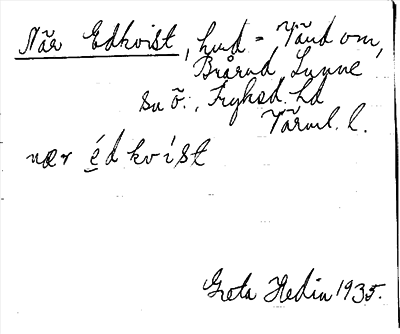 När Edkvist, hmd = Tånd om,
Brårud, Lunne
sn ö., Fryksd. hd
Värml. l.
nær édkvist
Greta Hedin 1935.